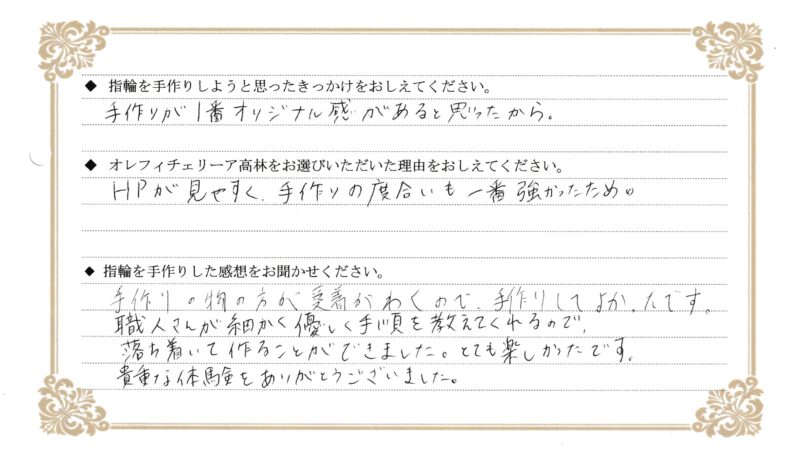 ◆ 指輪を手作りしようと思ったきっかけをおしえてください。
手作りが1番オリジナル感があると思ったから。
◆ オレフィチェリーア高林をお選びいただいた理由をおしえてください。
HPが見やすく、手作りの度合いも一番強かったため。
◆ 指輪を手作りした感想をお聞かせください。
手作りの物の方が愛着がわくので、手作りしてよかったです。
職人さんが細かく優しく手順を教えてくれるので、
落ち着いて作ることができました。とても楽しかったです。
貴重な体験をありがとうございました。